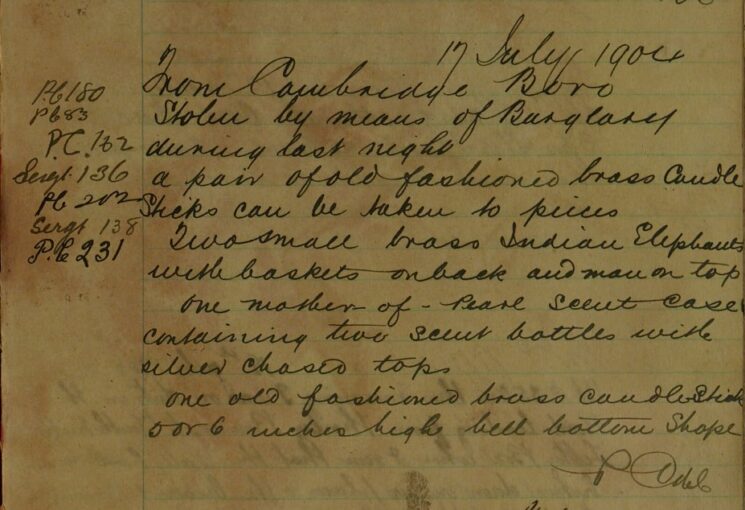 17 July 1904
From Cambridge Boro
Stolen by means of Burglary
during last night
a pair of old fashioned brass Candle
Sticks can be taken to pieces
Two small brass Indian Elephants
with baskets on back and man on top
one mother-of-Pearl Scent Case
containing two scent bottles with
silver chased tops
one old fashioned brass candlestick
5 or 6 inches high bell bottom Shape
P.C 180
P.C 83
P.C. 162
Sergt 136
P.C 202
Sergt 138
P.C 231